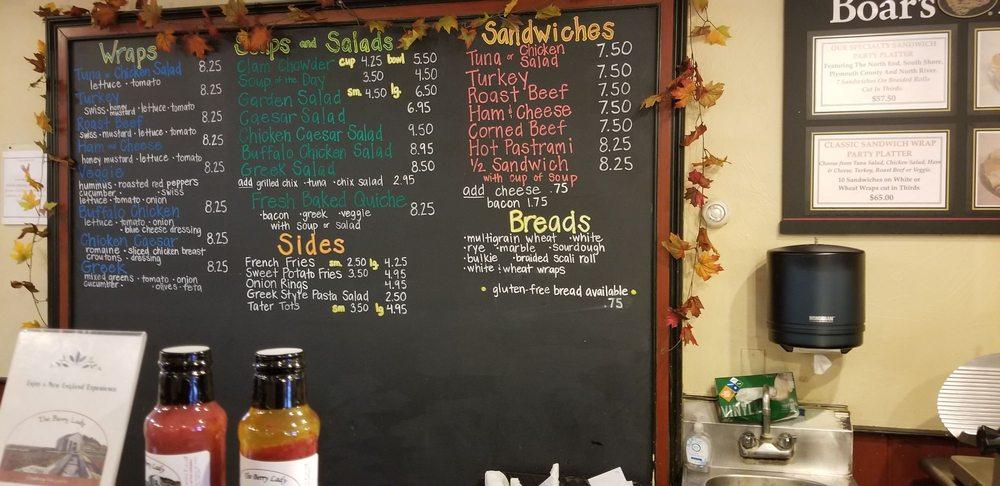 Wraps
Tuna or Chicken Salad 8.25
lettuce · tomato
Turkey 8.25
swiss · honey mustard · lettuce · tomato
Roast Beef 8.25
swiss · mustard · lettuce · tomato
Ham and Cheese 8.25
honey mustard · lettuce · tomato
Veggie 8.25
hummus · roasted red peppers
cucumber · swiss
lettuce · tomato · onion
Buffalo Chicken 8.25
lettuce · tomato · onion
· blue cheese dressing
Chicken Caesar 8.25
romaine · sliced chicken breast
croutons · dressing
Greek 8.25
mixed greens · tomato · onion
cucumber · olives · feta
Soups and Salads
Clam Chowder cup 4.25 bowl 5.50
Soup of the Day 3.50 4.50
Garden Salad sm. 4.50 lg. 6.50
Caesar Salad 6.95
Chicken Caesar Salad 9.50
Buffalo Chicken Salad 8.95
Greek Salad 8.50
add grilled chix · tuna · chix salad 2.95
Fresh Baked Quiche 8.25
· bacon · greek · veggie
with soup or salad
Sides
French Fries sm 2.50 lg 4.25
Sweet Potato Fries 3.50 4.95
Onion Rings 4.95
Greek Style Pasta Salad 2.50
Tater Tots sm 3.50 lg 4.95
Sandwiches
Tuna or Chicken Salad 7.50
Turkey 7.50
Roast Beef 7.50
Ham & Cheese 7.50
Corned Beef 7.50
Hot Pastrami 8.25
1/2 Sandwich 8.25
with cup of Soup
add cheese .75
bacon 1.75
Breads
· multigrain wheat · white
· rye · marble · sourdough
· bulkie · braided scali roll
· white & wheat wraps
· gluten-free bread available ·
.75
Boar's
OUR SPECIALTY SANDWICH
PARTY PLATTER
Featuring The North End, South Shore,
Plymouth County And North River.
7 Sandwiches On Braided Rolls
Cut In Thirds
$57.50
CLASSIC SANDWICH WRAP
PARTY PLATTER
Choose from Tuna Salad, Chicken Salad, Ham
& Cheese, Turkey, Roast Beef or Veggie.
10 Sandwiches on White or
Wheat Wraps cut in Thirds
$65.00
Enjoy a New England Experience
The Berry Lady
The Berry Lady
VINYL